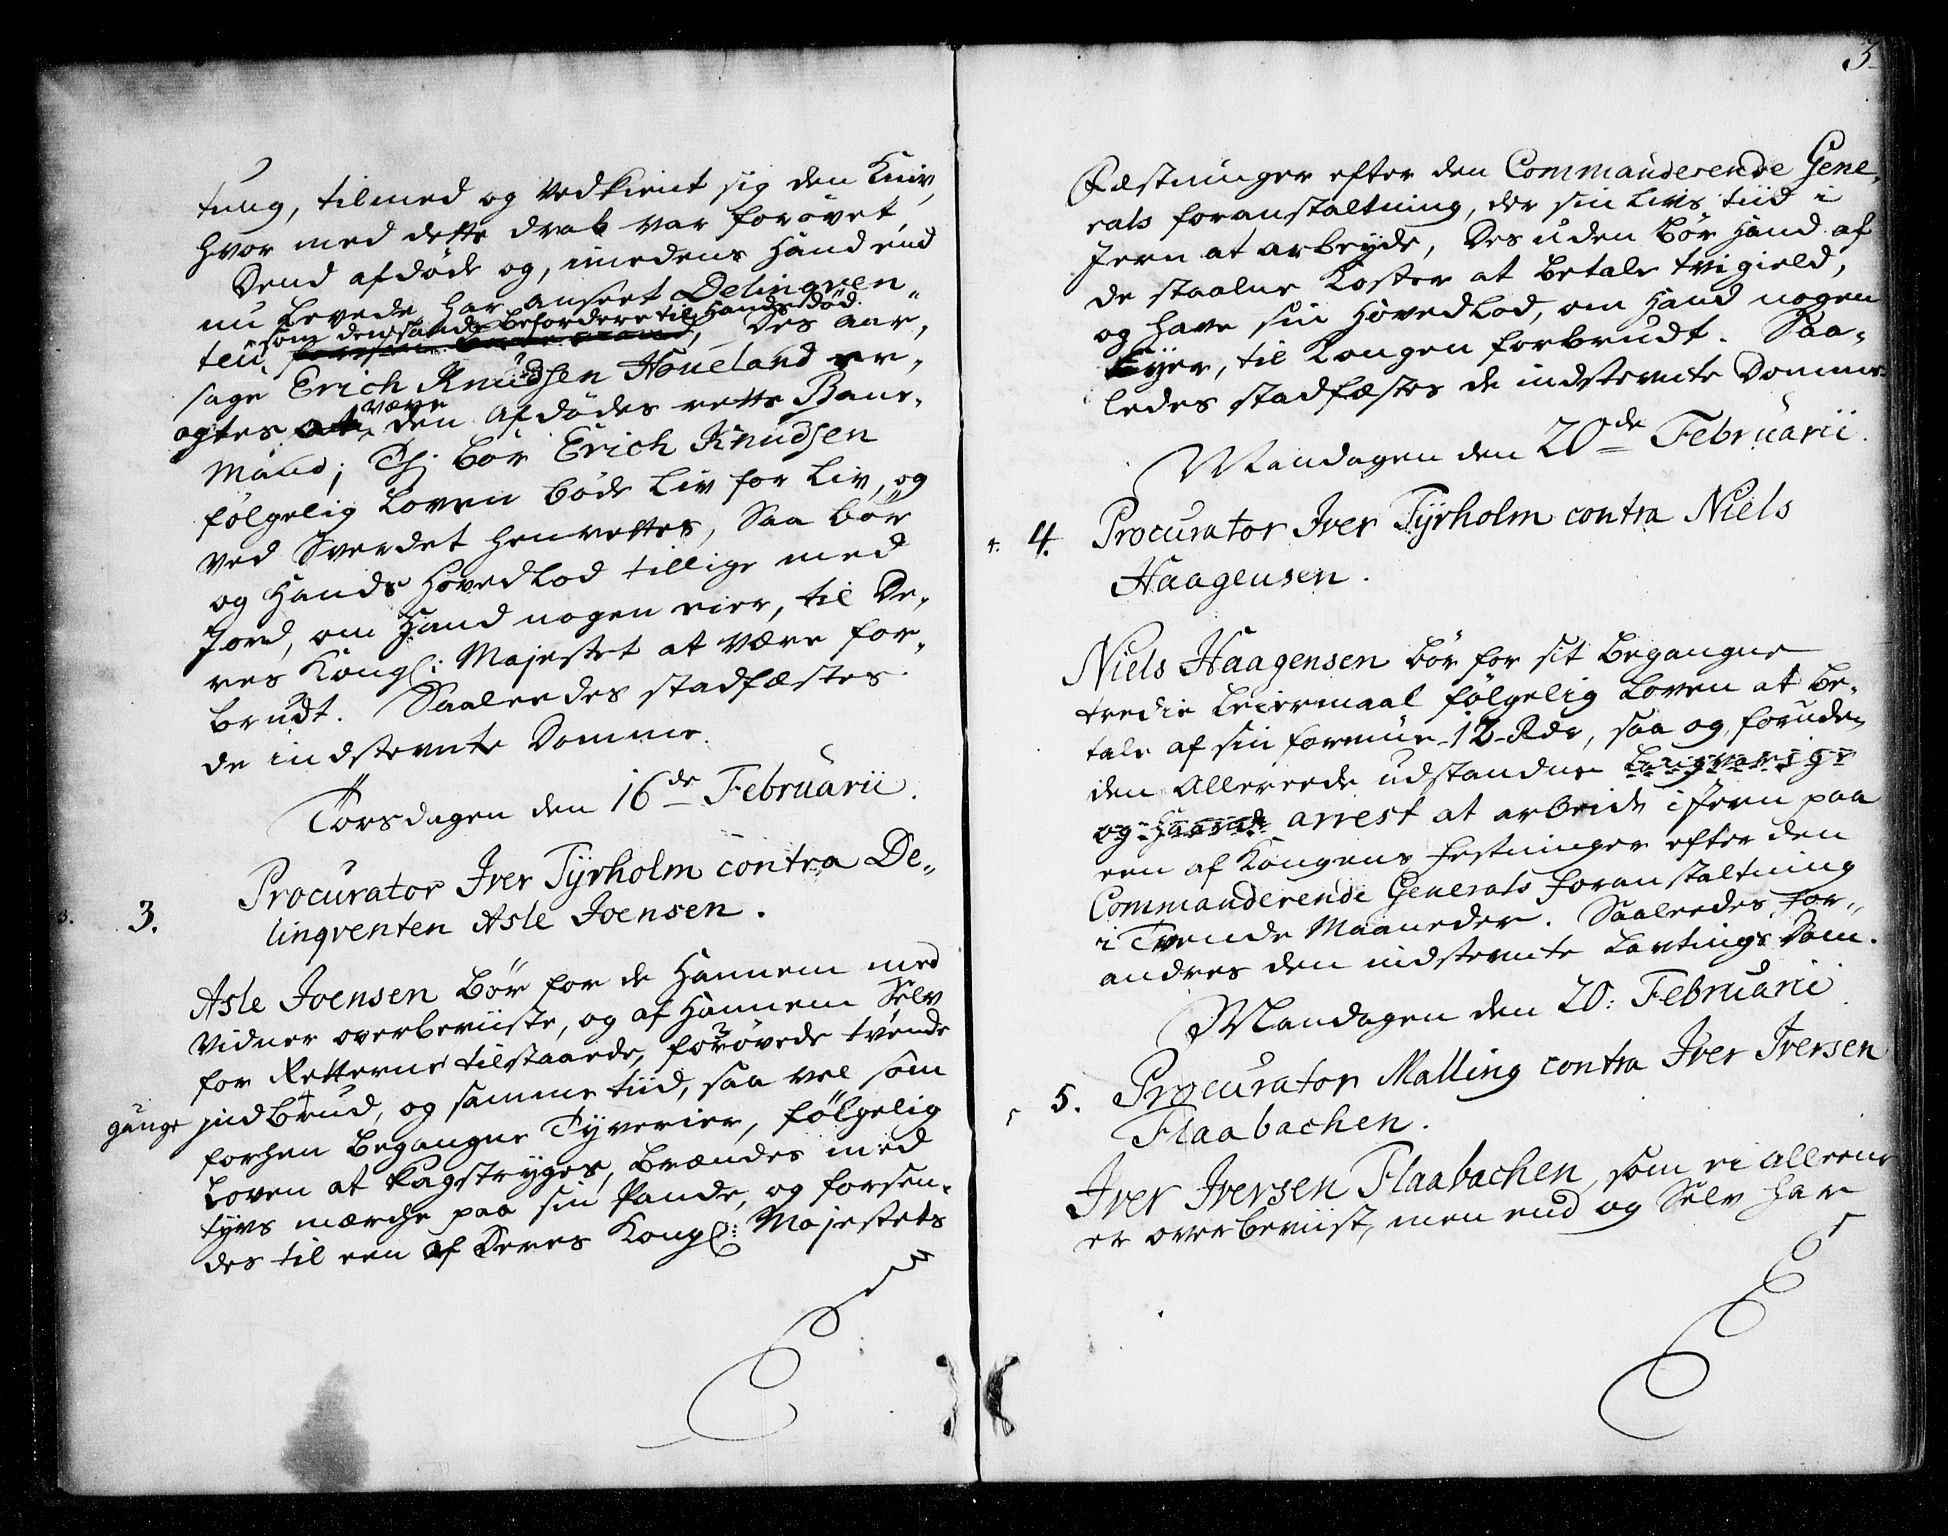 tung, tilmed og vedkient sig den Kniv,
hvor med dette drab var forövet,
Dend afdöde og, imedens Hand end
nu levede har anseet Delinqven„
som den Hands befordere til Hands död.
ten, Des aar„
sage Erich Knudsen Houeland er„
være
agtes at den afdödes rette Bane„
Mand; Thi bör Erich Knudsen
fölgelig Loven böde Liv for Liv, og
ved Sverdet henrettes, Saa bör
og Hands Hovedlod tillige med
Jord, om Hand nogen eier, til De„
res Kongl: Majestet at være for„
brudt. Saaleedes stadfæstes
de indstevnte Domme.
Torsdagen den 16de Februarii.
3. 3. Procurator Iver Tyrholm contra De„
linqventen Asle Joensen.
Asle Joensen bör for de Hannem med
Vidner overbeviiste, og af Hannem Selv
for Retterne tilstaaede, forövede tvende
gange indbrud, og samme tiid, saa vel som
forhen begangne Tyverier, fölgelig
Loven at Kagstryges, brændes med
tyvs mærche paa sin Pande, og forsen„
des til een af Deres Kongl: Majestets
3
Fæstninger efter den Commanderende Gene„
rals foranstaltning, der sin Livs tiid i
Jern at arbeyde, Des uden bör Hand af
de staalne Koster at betale tvigield,
og have sin Hovedlod, om Hand nogen
Eyer, til Kongen forbrudt. Saa„
ledes stadfæstes de indstevnte Domme.
Mandagen den 20de Februarii.
4. 4. Procurator Iver Tyrholm contra Niels
Haagensen.
Niels Haagensen bör for sit begangne
tredie Leiermaal fölgelig Loven at be„
tale af sin formue 12 Rdr, saa og, foruden
den Allereede udstandne langvarige
og haarde arrest at arbeide i Jern paa
een af Kongens Festninger efter den
Commanderende Generals Foranstaltning
i Tvende Maaneder. Saaleedes For„
andres den indstevnte Lavtings Dom.
Mandagen den 20: Februarii
5 5. Procurator Malling contra Iver Iversen
Flaabachen.
Iver Iversen Flaabachen, som ei alleene
er overbeviist, men end og Selv har